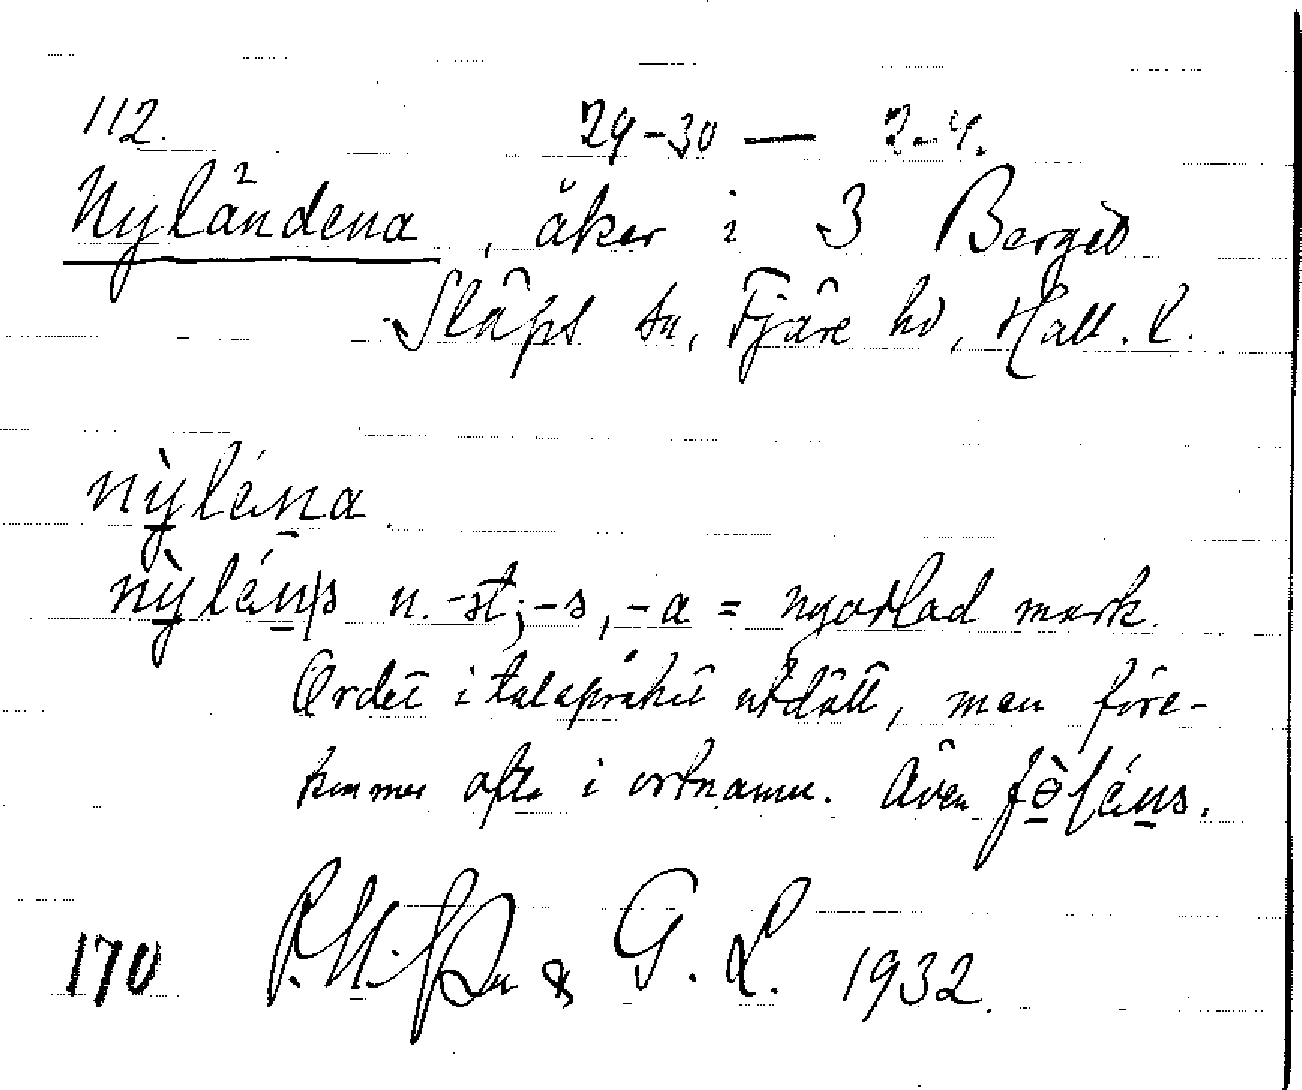 112. 29-30 — 2-4.
Nyländena, åker i 3 Berget
Släps sn, Fjäre hd, Hall. l.
nỳléna
nỳléns n. -st; -s, -a = nyodlad mark.
Ordet i talspråket utdött, men före-
kommer ofta i ortnamn. Även
& G. L. 1932.
170